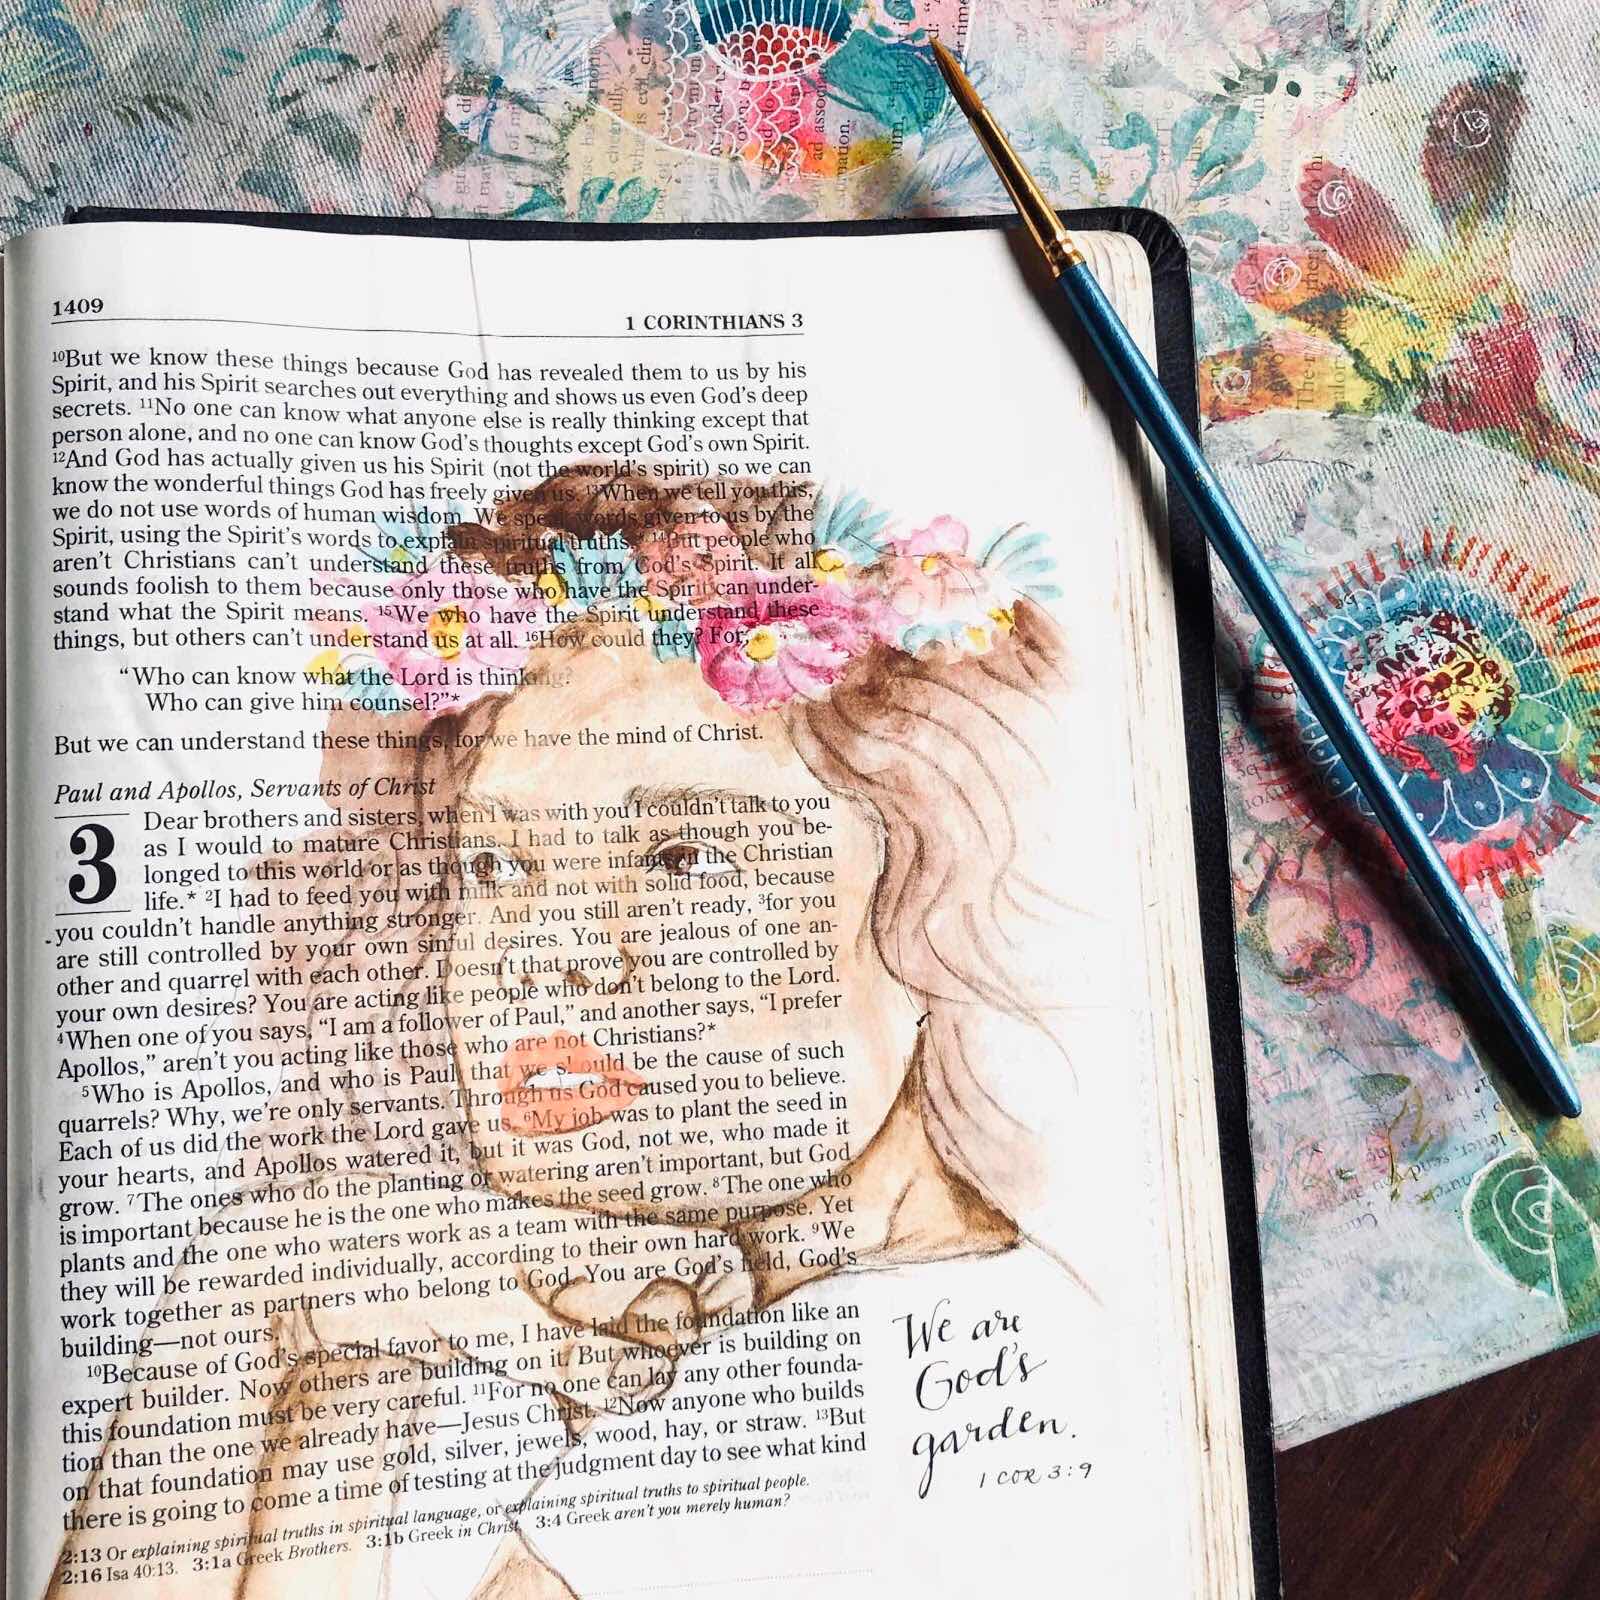 1409
1 CORINTHIANS 3
¹⁰But we know these things because God has revealed them to us by his
Spirit, and his Spirit searches out everything and shows us even God's deep
secrets. ¹¹No one can know what anyone else is really thinking except that
person alone, and no one can know God's thoughts except God's own Spirit.
¹²And God has actually given us his Spirit (not the world's spirit) so we can
know the wonderful things God has freely given us. ¹³When we tell you this,
we do not use words of human wisdom. We speak words given to us by the
Spirit, using the Spirit's words to explain spiritual truths.* ¹⁴But people who
aren't Christians can't understand these truths from God's Spirit. It all
sounds foolish to them because only those who have the Spirit can under-
stand what the Spirit means. ¹⁵We who have the Spirit understand these
things, but others can't understand us at all. ¹⁶How could they? For,
“Who can know what the Lord is thinking?
Who can give him counsel?”*
But we can understand these things, for we have the mind of Christ.
Paul and Apollos, Servants of Christ
3 Dear brothers and sisters, when I was with you I couldn't talk to you
as I would to mature Christians. I had to talk as though you be-
longed to this world or as though you were infants in the Christian
life.* ²I had to feed you with milk and not with solid food, because
you couldn't handle anything stronger. And you still aren't ready, ³for you
are still controlled by your own sinful desires. You are jealous of one an-
other and quarrel with each other. Doesn't that prove you are controlled by
your own desires? You are acting like people who don't belong to the Lord.
⁴When one of you says, “I am a follower of Paul,” and another says, “I prefer
Apollos,” aren't you acting like those who are not Christians?*
⁵Who is Apollos, and who is Paul, that we should be the cause of such
quarrels? Why, we're only servants. Through us God caused you to believe.
Each of us did the work the Lord gave us. ⁶My job was to plant the seed in
your hearts, and Apollos watered it, but it was God, not we, who made it
grow. ⁷The ones who do the planting or watering aren't important, but God
is important because he is the one who makes the seed grow. ⁸The one who
plants and the one who waters work as a team with the same purpose. Yet
they will be rewarded individually, according to their own hard work. ⁹We
work together as partners who belong to God. You are God's field, God's
building—not ours.
¹⁰Because of God's special favor to me, I have laid the foundation like an
expert builder. Now others are building on it. But whoever is building on
this foundation must be very careful. ¹¹For no one can lay any other founda-
tion than the one we already have—Jesus Christ. ¹²Now anyone who builds
on that foundation may use gold, silver, jewels, wood, hay, or straw. ¹³But
there is going to come a time of testing at the judgment day to see what kind
2:13 Or explaining spiritual truths in spiritual language, or explaining spiritual truths to spiritual people.
2:16 Isa 40:13. 3:1a Greek Brothers. 3:1b Greek in Christ. 3:4 Greek aren't you merely human?
We are
God's
garden.
1 COR 3:9